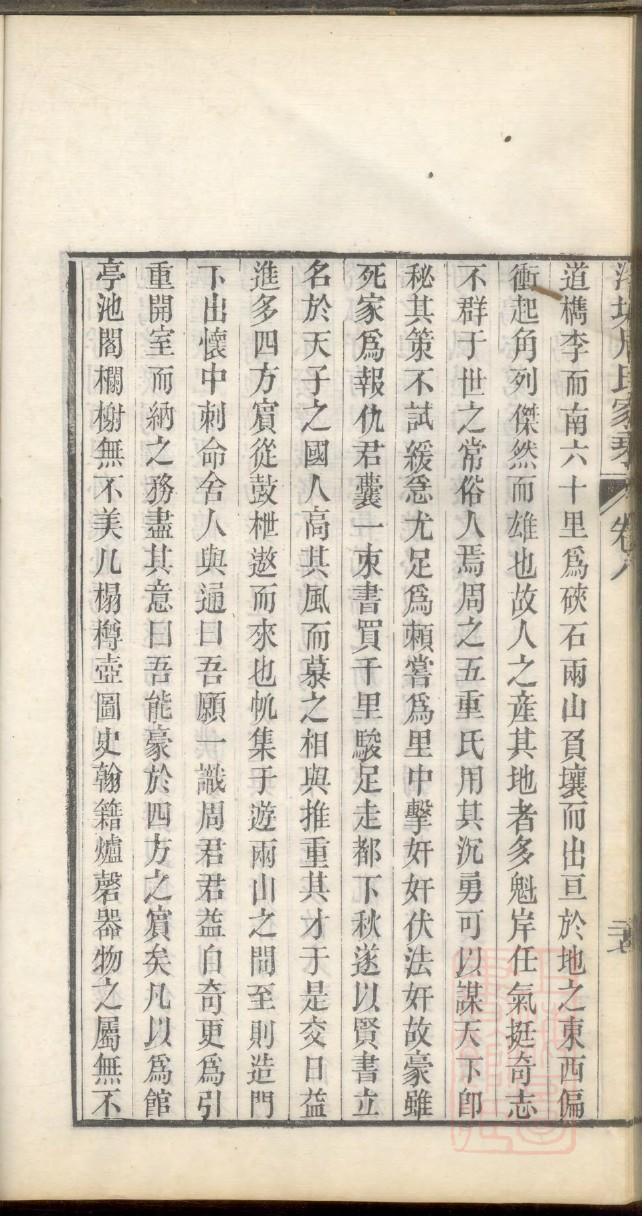 周氏家
卷八
道檇李而南六十里爲硤石兩山負壤而出亘於地之東西偏
衝起角列傑然而雄也故人之産其地者多魁岸任氣挺奇志
不群于世之常俗人焉周之五重氏用其沉勇可以謀天下卽
秘其策不試緩急尤足爲賴嘗爲里中擊奸奸伏法奸故豪雖
死家爲報仇君囊一束書買千里駿足走都下秋遂以賢書立
名於天子之國人高其風而慕之相與推重其才于是交日益
進多四方賓從鼓枻遨而來也帆集于遊兩山之間至則造門
下出懷中刺命舍人與通曰吾願一識周君君益自奇更爲引
重開室而納之務盡其意曰吾能豪於四方之賓矣凡以爲館
亭池閣欄榭無不美几榻樽壺圖史翰籍爐磬器物之屬無不